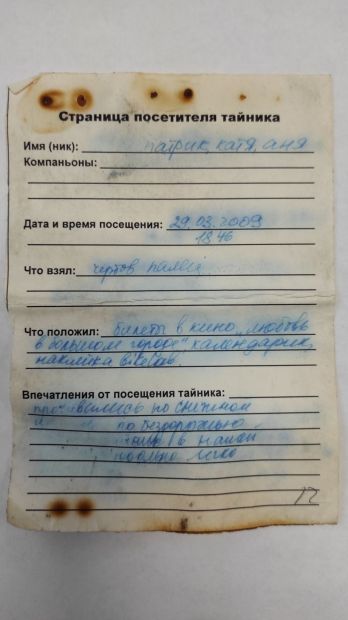 Страница посетителя тайника
Имя (ник): Патрик, Катя, Аня
Компаньоны:
Дата и время посещения: 29.03.2009
18 46
Что взял: чертов палец
Что положил: билеты в кино „любовь
в большом городе" календарик,
наклейка
Впечатления от посещения тайника:
по снежном
по бездорожью
в
довольно легко
17